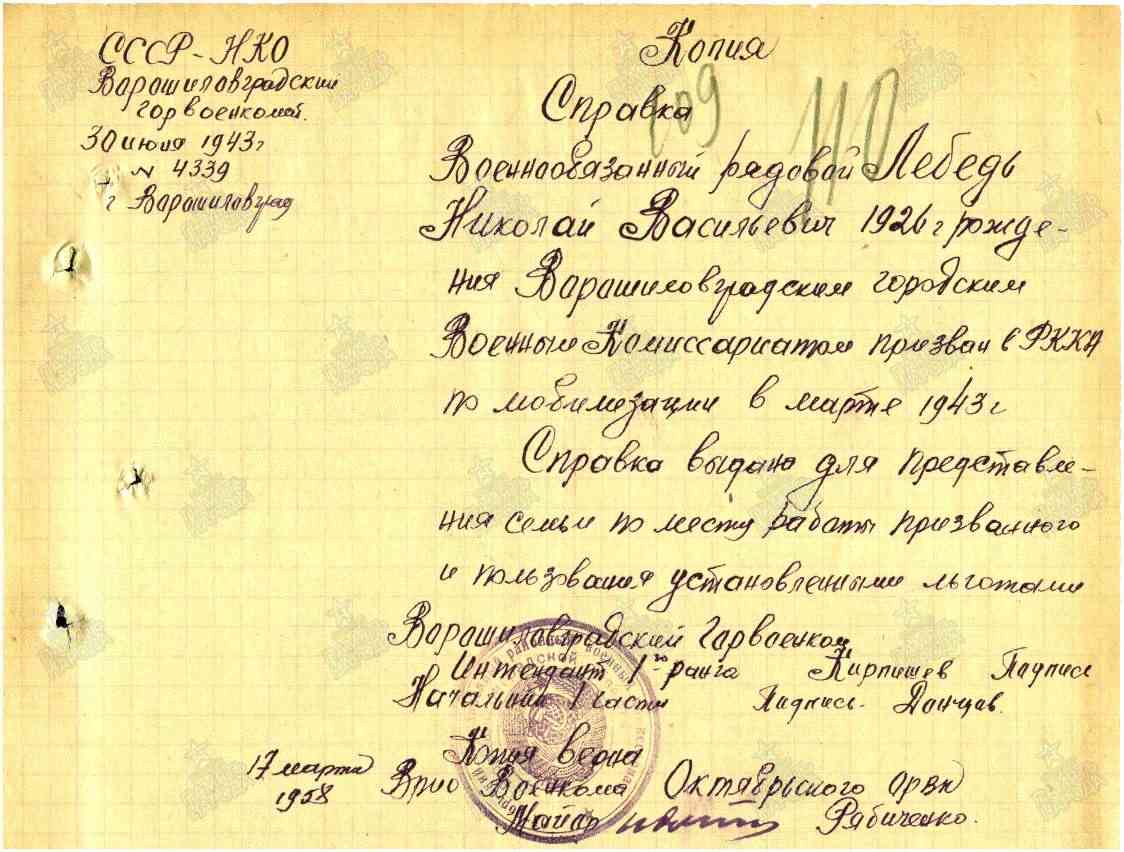 СССР - НКО
Варашиловградский
горвоенкомат.
30 июня 1943 г
N 4339
г Варашиловград
Копия
109
110
Справка
Военнообязанный рядовой Лебедь
Николай Васильевич 1926 г рожде-
ния Варашиловградским городским
Военным Комиссариатом призван в РККА
по мобилезации в марте 1943 г
Справка выдано для представле-
ния семьи по месту работы призванного
и пользования установленными льготами
Варашиловградский Горваенком
Интендант 1го ранга Кирпишев Падпись
Начальник 1 части Падпись. Данцов.
Копия верна
17 марта
1958
Врио Военкома Октябрьского ОРВК
Майор Рябиченко.